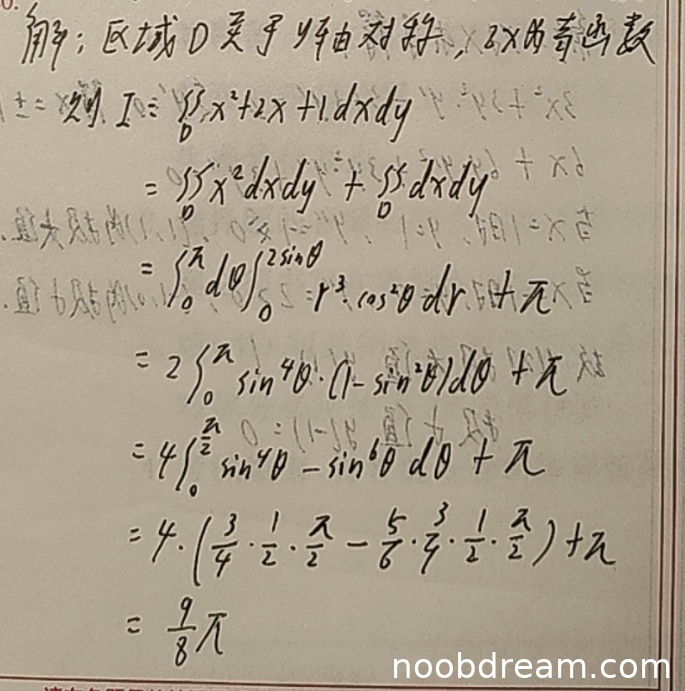 解：区域D关于y轴对称，2x为奇函数
则 I = ∬_D x²+2x+1 dxdy
= ∬_D x²dxdy + ∬_D dxdy
= ∫_0^π dθ ∫_0^{2sinθ} r³·cos²θ dr + π
= 2∫_0^π sin⁴θ·(1-sin²θ)dθ + π
= 4∫_0^{π/2} sin⁴θ - sin⁶θ dθ + π
= 4·(3/4·1/2·π/2 - 5/6·3/4·1/2·π/2) + π
= 9/8 π
noobdream.com